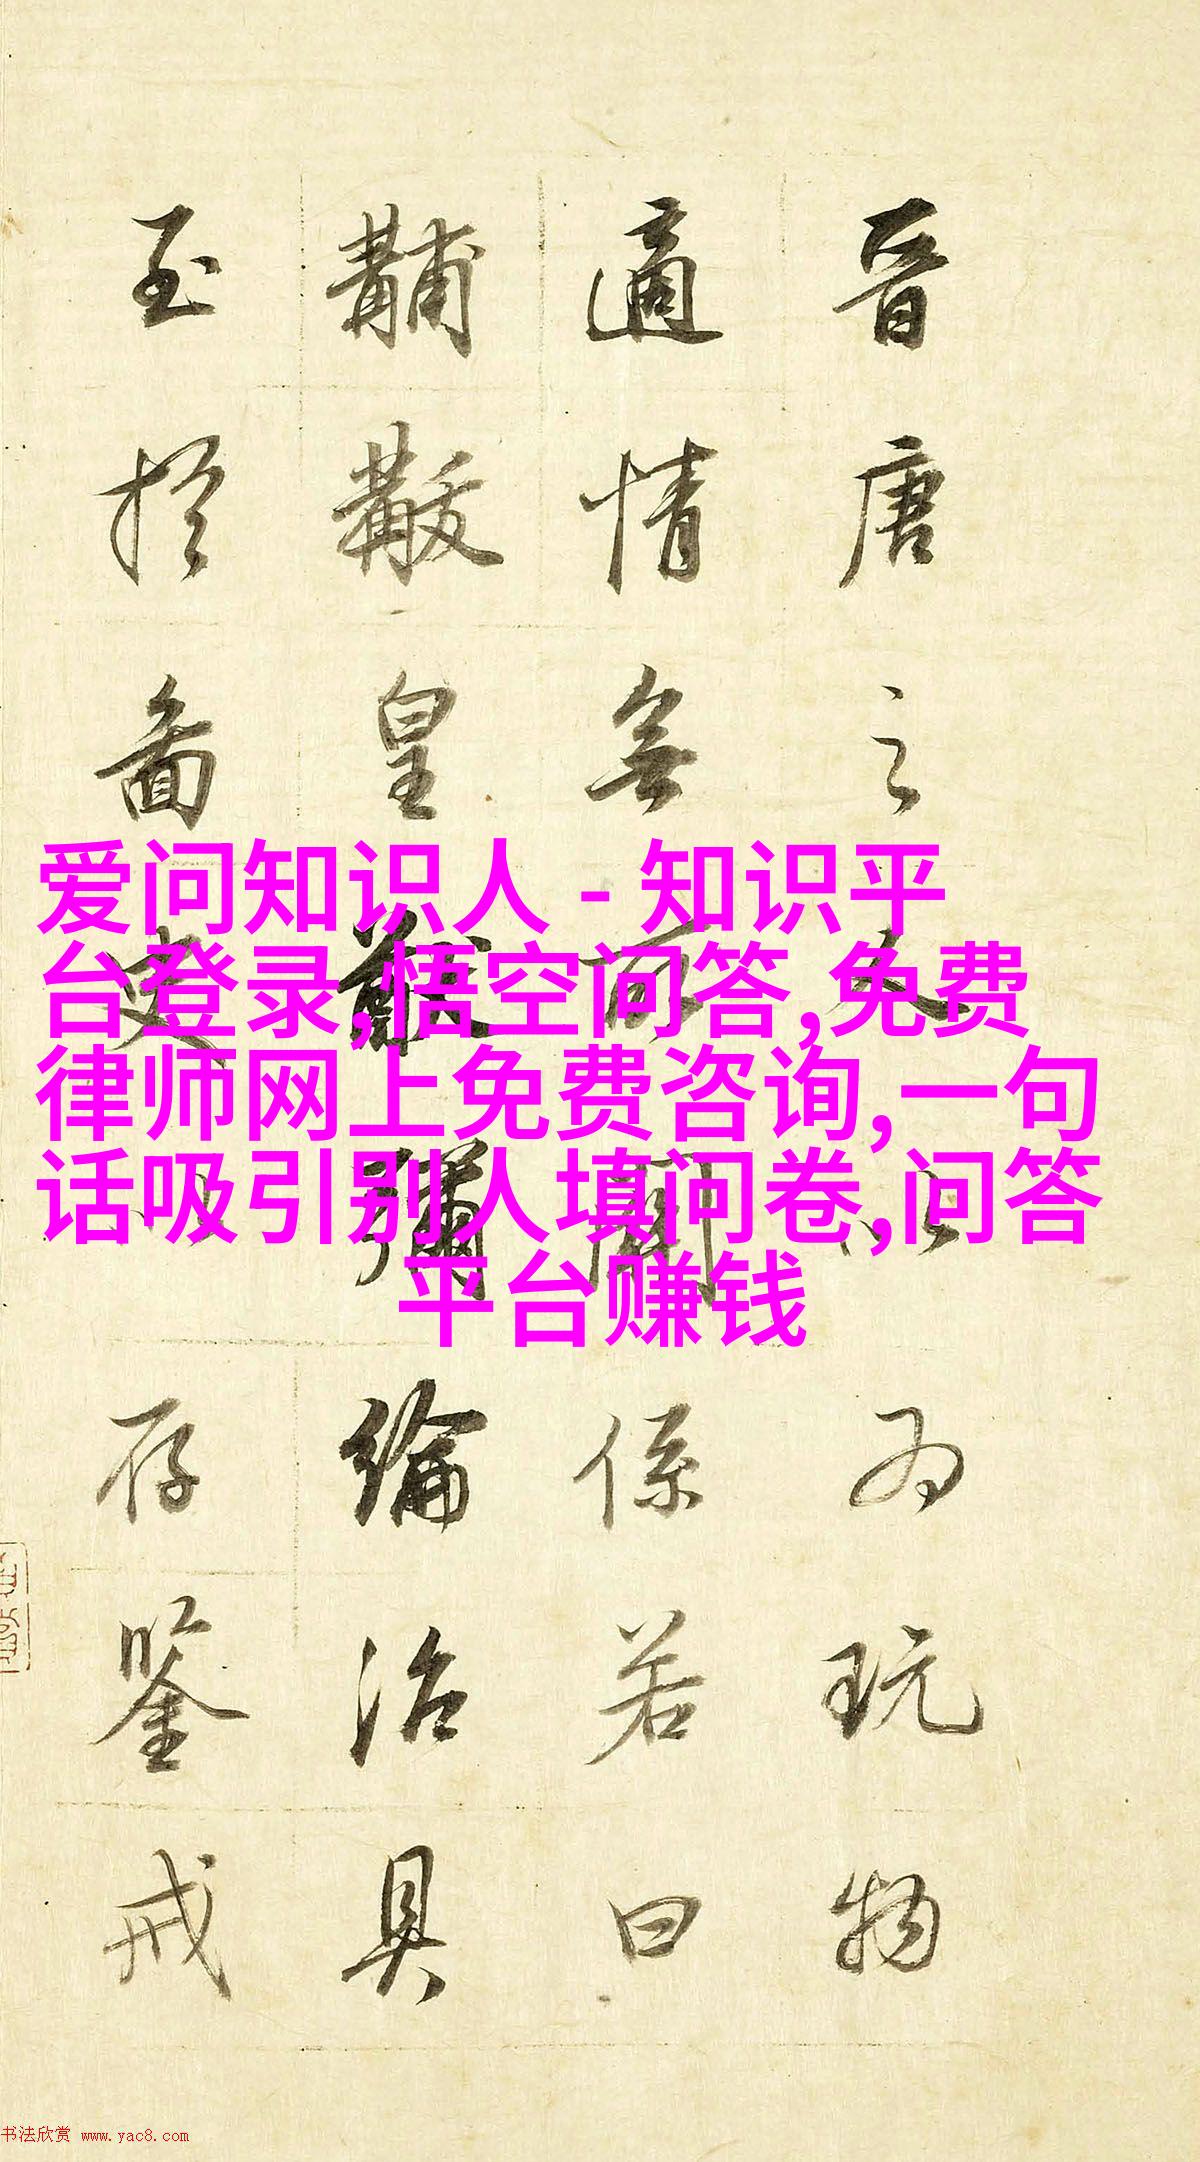 晉唐之人以为玩物
適情無所關係若曰
黼黻皇猷彌綸治具
至於啚史以存鑒戒
爱问知识人 - 知识平
台登录,悟空问答,免费
律师网上免费咨询,一句
话吸引别人填问卷,问答
平台赚钱
书法欣赏 www.yac8.com